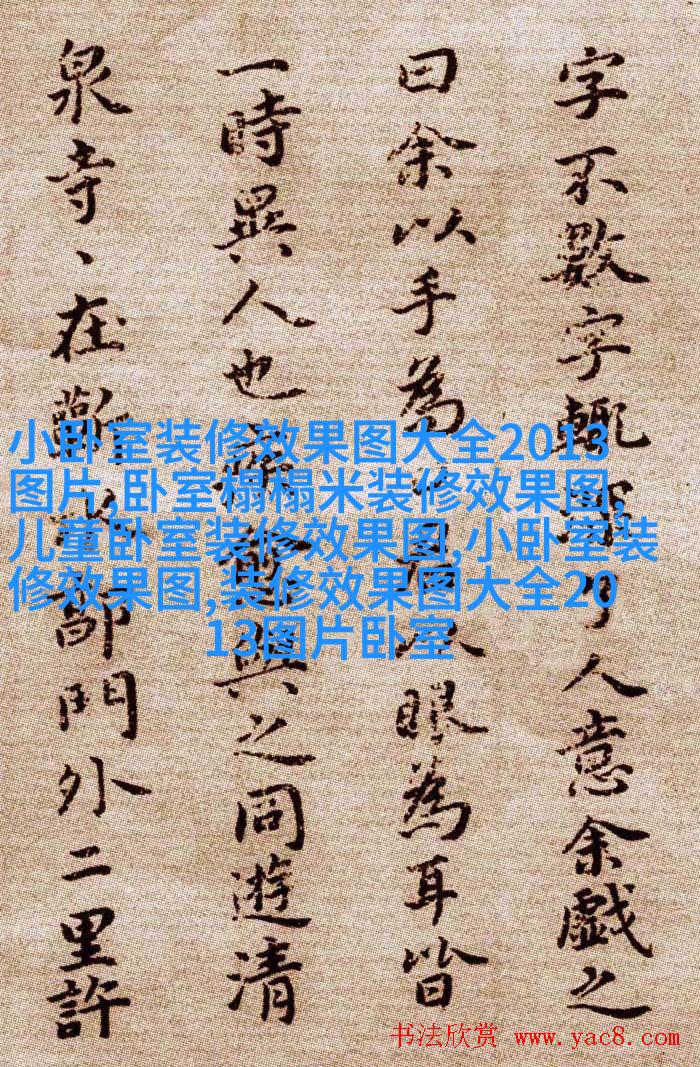 字不數字輒人意余戲之
曰余以手為眼為耳皆
一時異人也與之同遊清
泉寺、在蘄郭門外二里許
小卧室装修效果图大全2013
图片,卧室榻榻米装修效果图,
儿童卧室装修效果图,小卧室装
修效果图,装修效果图大全20
13图片卧室
书法欣赏 www.yac8.com